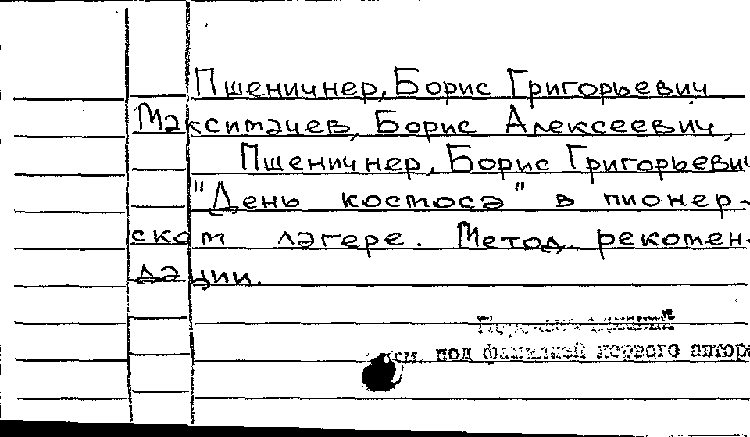 Пшеничнер, Борис Григорьевич
Максимачев, Борис Алексеевич,
Пшеничнер, Борис Григорьевич
"День космоса" в пионер-
ском лагере. Метод. рекомен-
дации.
см. под фамилией первого автора